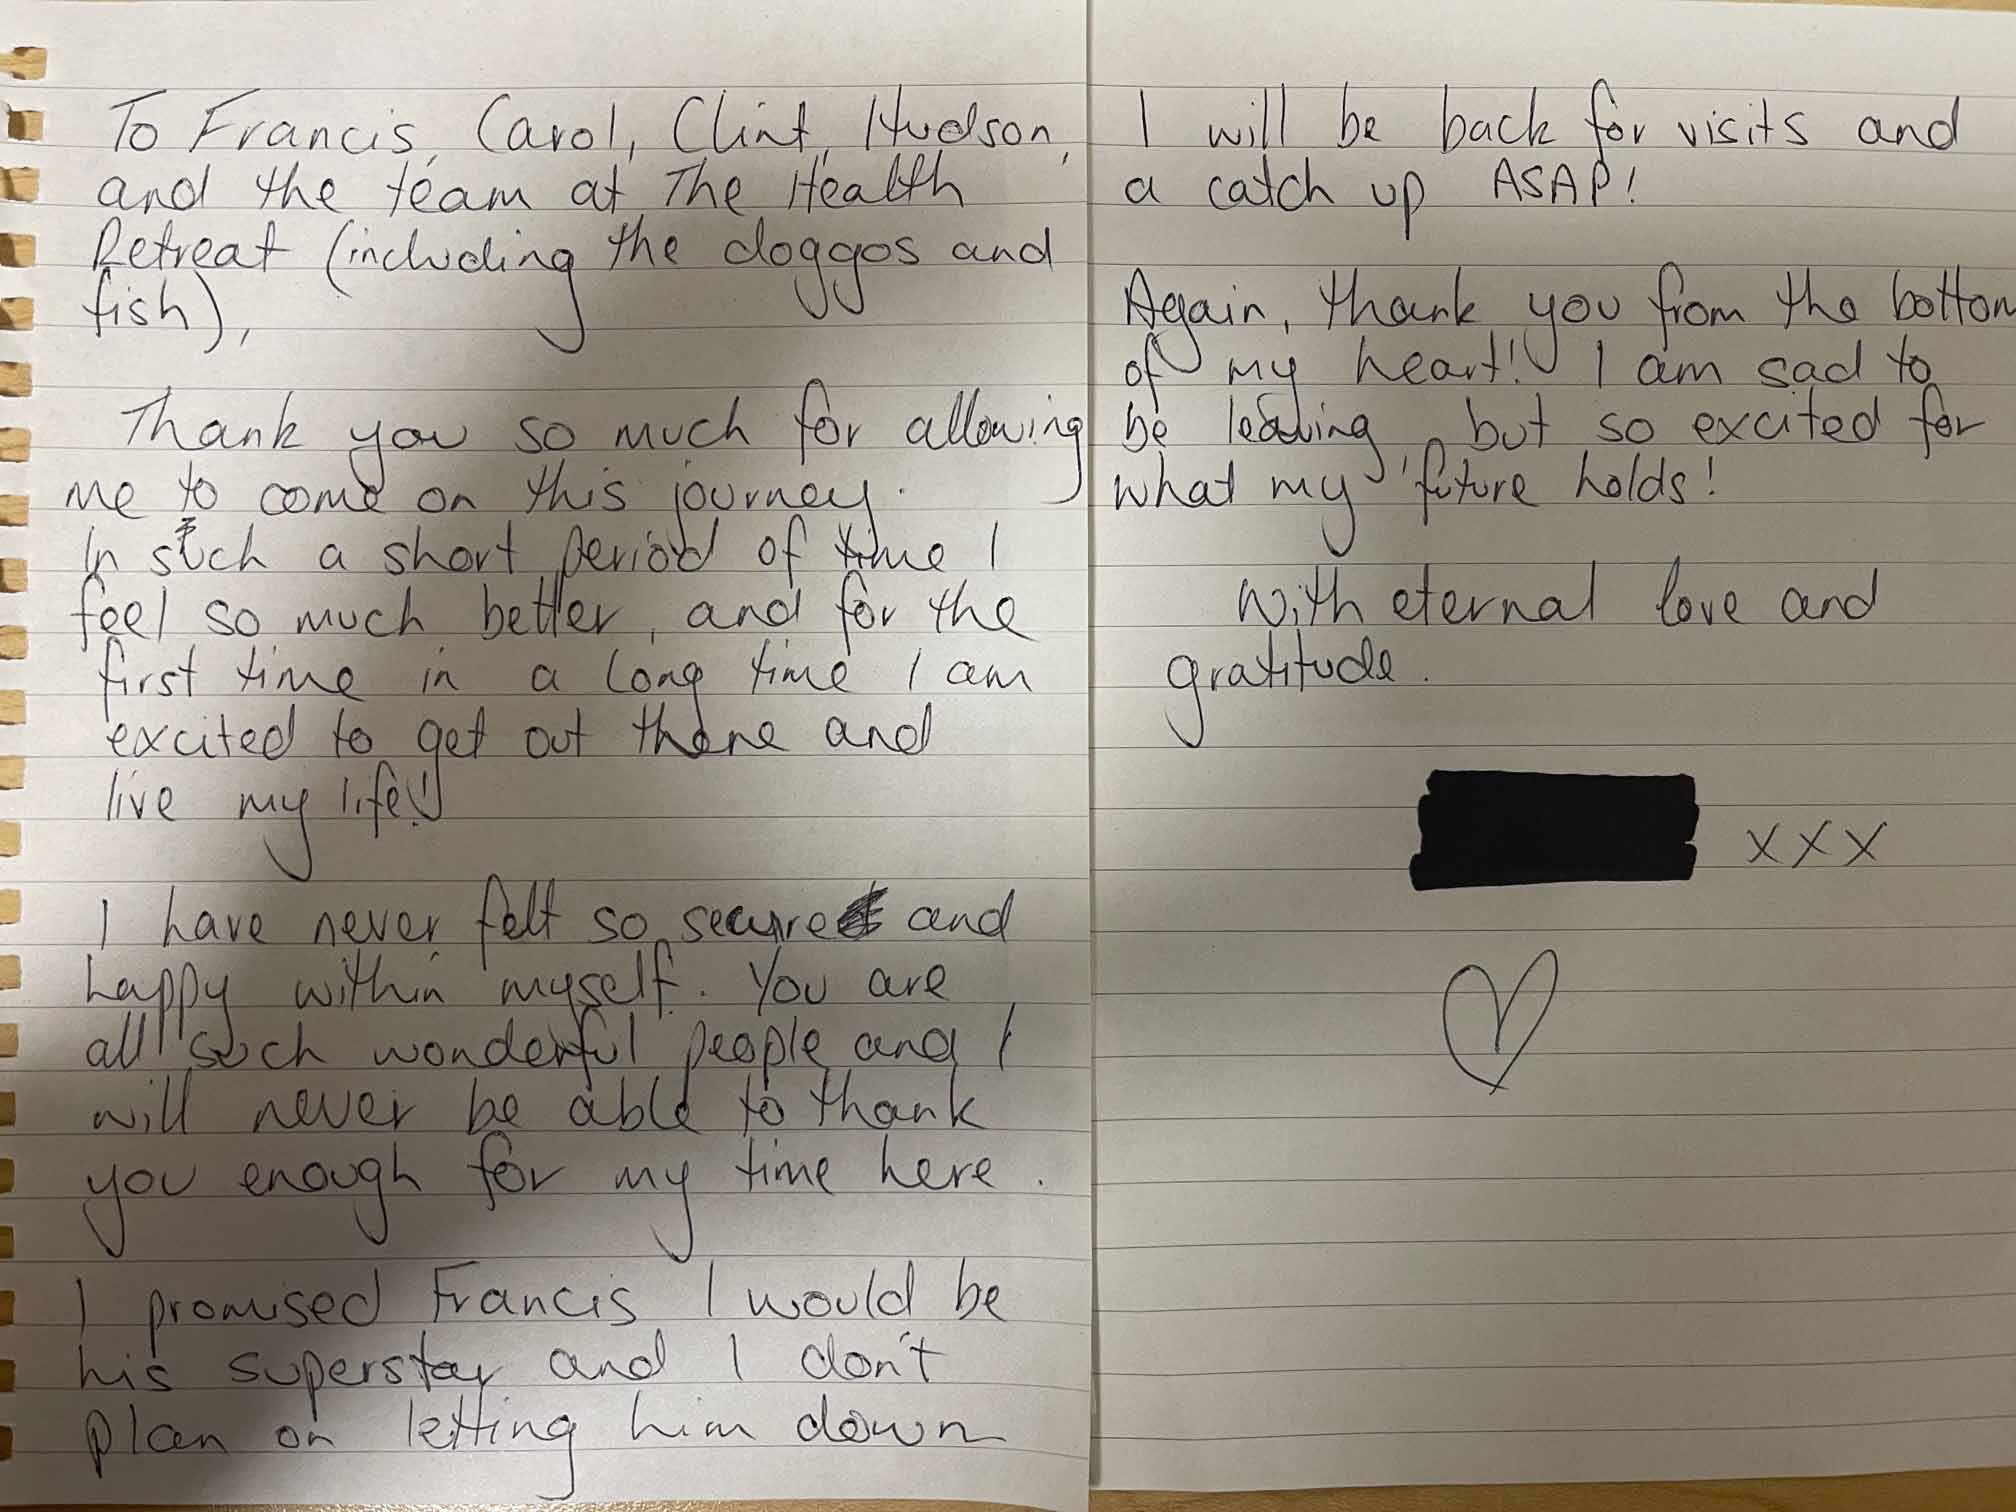 To Francis, Carol, Clint, Hudson,
and the team at The Health
Retreat (including the doggos and
fish),
Thank you so much for allowing
me to come on this journey.
In such a short period of time I
feel so much better, and for the
first time in a long time I am
excited to get out there and
live my life!
I have never felt so secure and
happy within myself. You are
all such wonderful people and I
will never be able to thank
you enough for my time here.
I promised Francis I would be
his superstar and I don't
plan on letting him down
I will be back for visits and
a catch up ASAP!
Again, thank you from the bottom
of my heart! I am sad to
be leaving, but so excited for
what my future holds!
With eternal love and
gratitude.
xxx